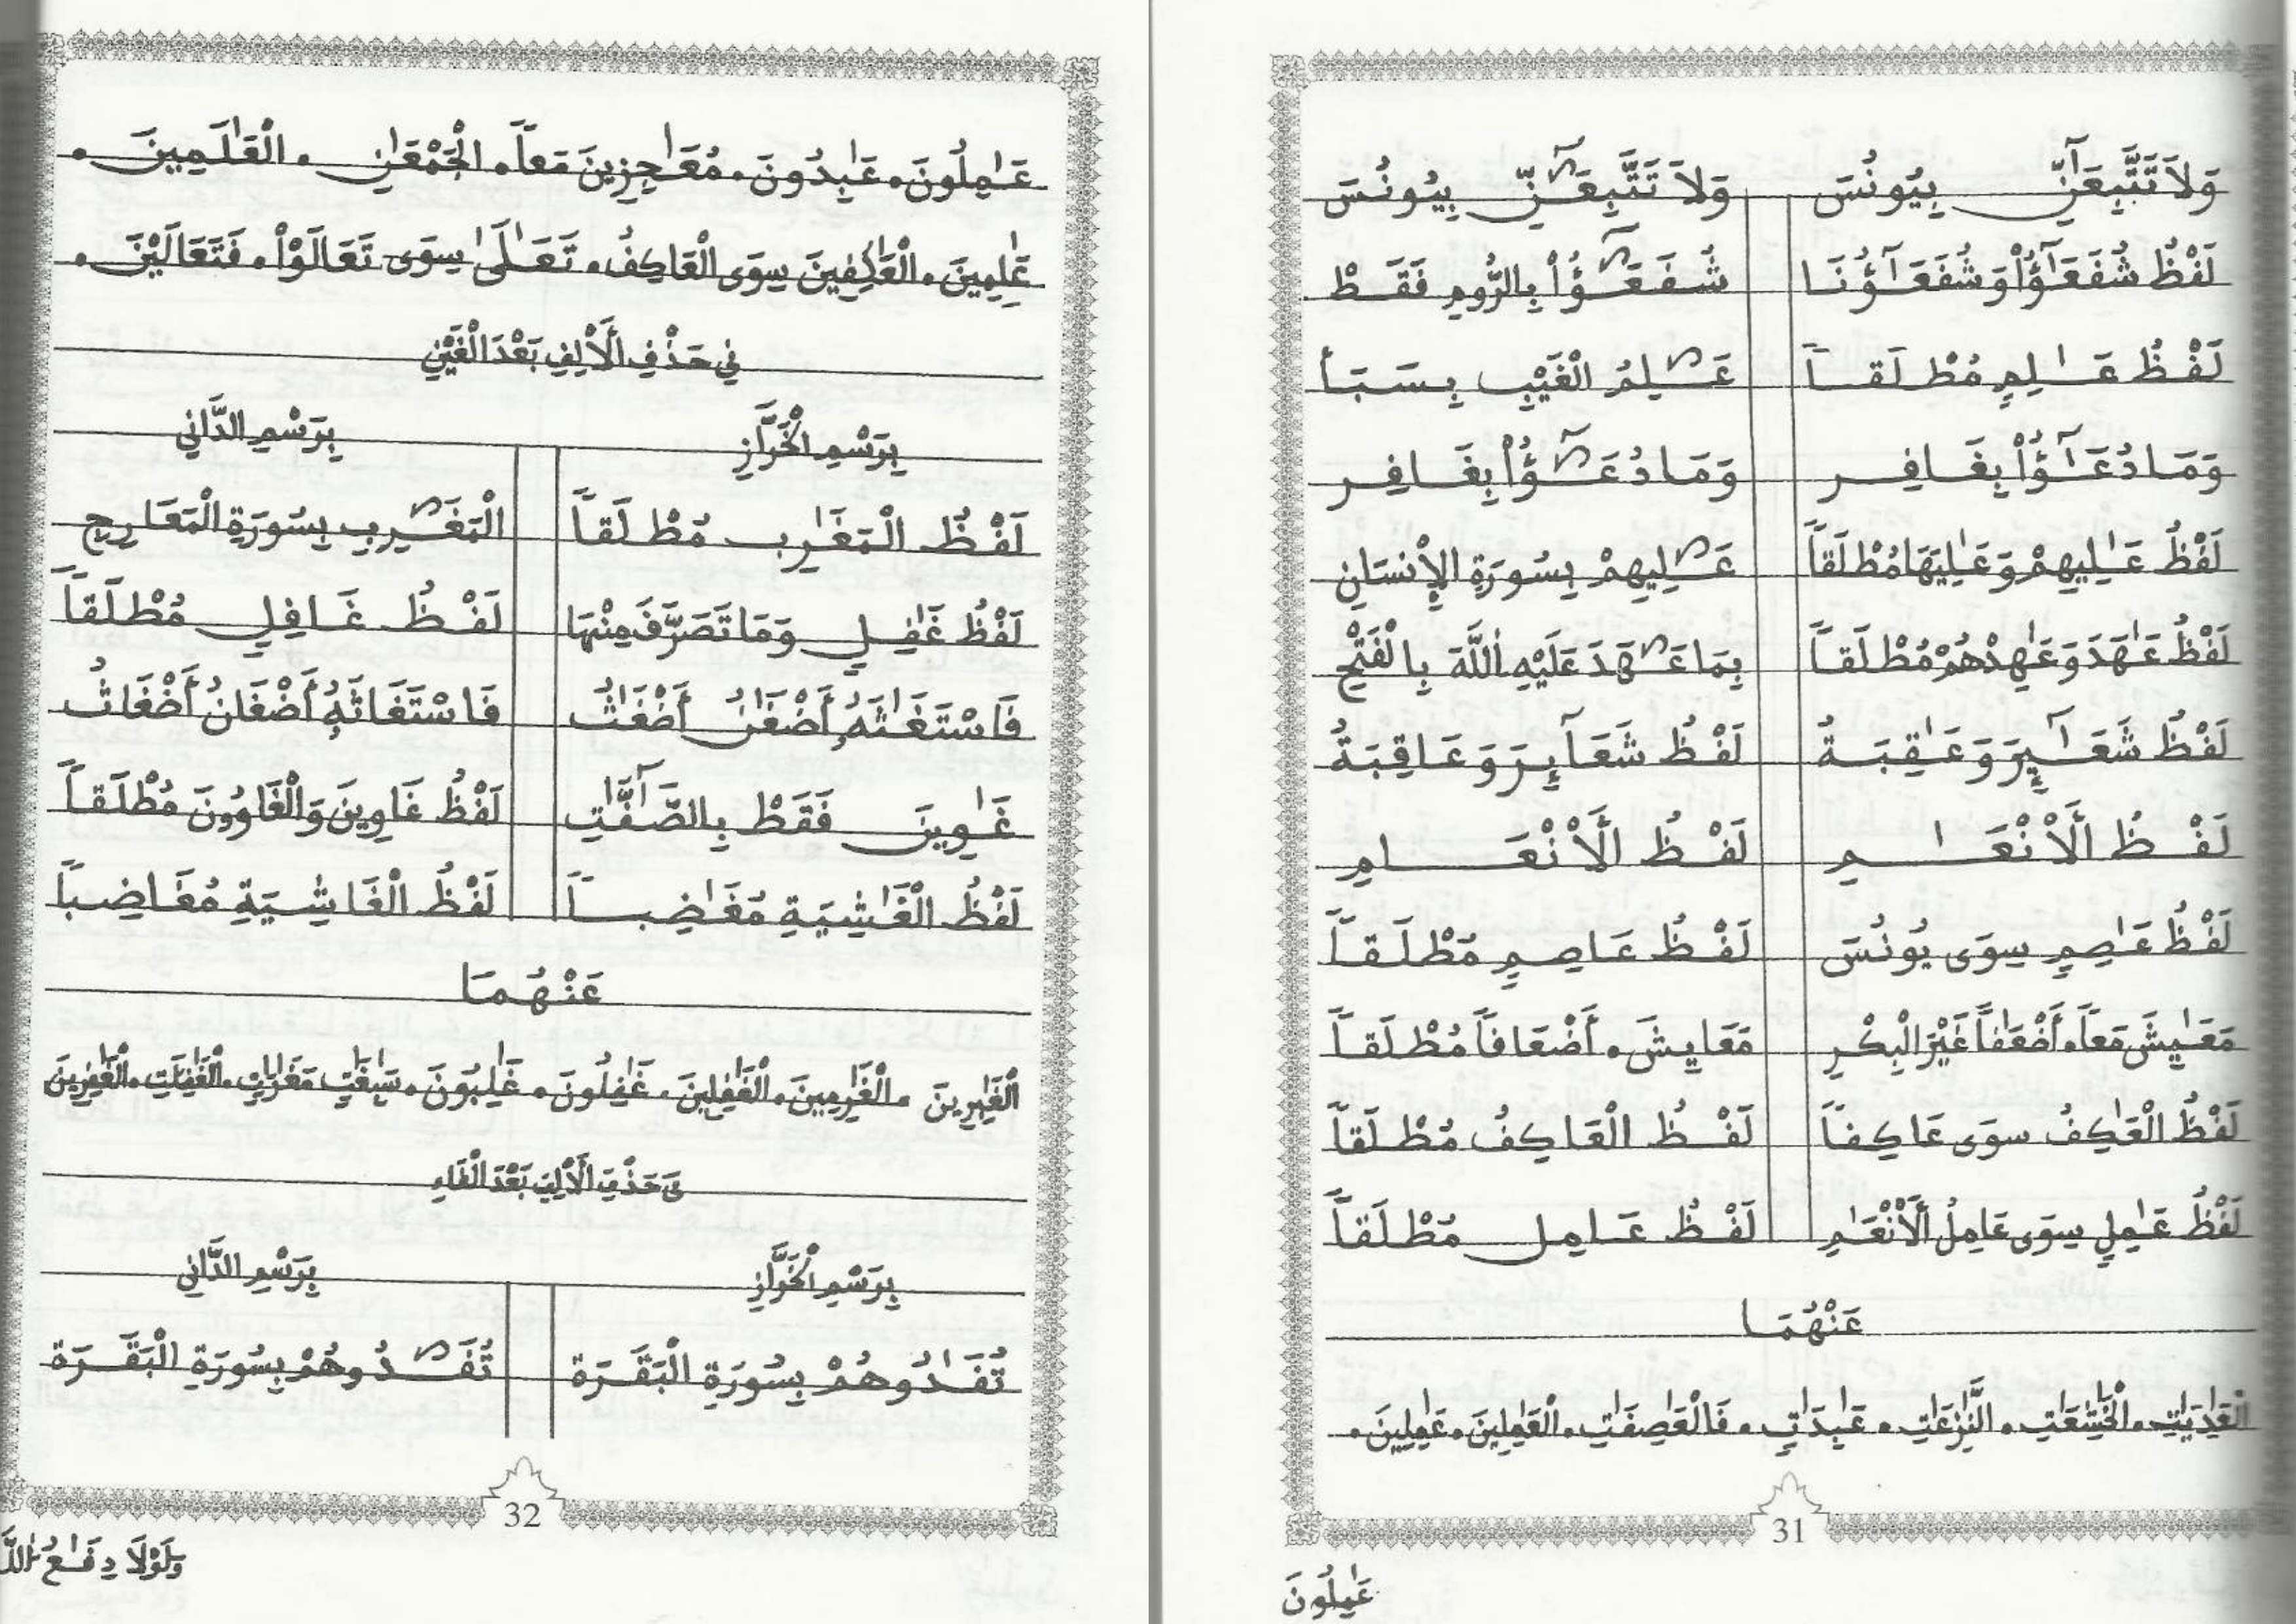 وَلَا تَتَّبِعَٰٓنِّ بِيُونُسَ وَلَا تَتَّبِعَٰٓنِّ بِيُونُسَ
لَفْظُ شُفَعَٰٓؤُاْ وَشُفَعَٰٓؤُنَا شُفَعَٰٓؤُاْ بِالرُّومِ فَقَطْ
لَفْظُ عَٰلِمِ مُطْلَقاً عَٰلِمُ الْغَيْبِ بِسَبَأ
وَمَا دُعَٰٓؤُاْ بِغَافِر وَمَا دُعَٰٓؤُاْ بِغَافِر
لَفْظُ عَٰلِيهِمْ وَعَٰلِيَهَا مُطْلَقاً عَٰلِيهِمْ بِسُورَةِ الْإِنْسَانِ
لَفْظُ عَٰهَدَ وَعَٰهِدْهُمْ مُطْلَقاً بِمَا عَٰهَدَ عَلَيْهِ اللَّهَ بِالْفَتْحِ
لَفْظُ شَعَٰٓئِرَ وَعَٰقِبَةُ لَفْظُ شَعَآئِرَ وَعَاقِبَةُ
لَفْظُ الْأَنْعَٰمِ لَفْظُ الْأَنْعَامِ
لَفْظُ عَٰصِمِ سِوَى يُونُسَ لَفْظُ عَاصِمِ مُطْلَقاً
مَعَٰيِشَ مَعاً، أَضْعَٰفاً غَيْرَ الْبِكْرِ مَعَايِشَ، أَضْعَافاً مُطْلَقاً
لَفْظُ الْعَٰكِفُ سِوَى عَاكِفاً لَفْظُ الْعَاكِفُ مُطْلَقاً
لَفْظُ عَٰمِلِ سِوَى عَامِلُ الْأَنْعَٰمِ لَفْظُ عَامِل مُطْلَقاً
عَنْهُمَا
الْعَٰدِيَٰتِ. الْخَٰشِعَٰتِ. النَّٰزِعَٰتِ. عَٰبِدَٰتٍ. فَالْعَٰصِفَٰتِ. الْعَٰمِلِينَ. عَٰمِلِينَ.
31
عَٰمِلُونَ
عَٰمِلُونَ. عَٰبِدُونَ. مُعَٰجِزِينَ مَعاً. الْجَمْعَٰنِ. الْعَٰلَمِينَ.
عَٰلِمِينَ. الْعَٰكِفِينَ سِوَى الْعَاكِفُ. تَعَٰلَىٰ سِوَى تَعَالَوْاْ. فَتَعَالَيْنَ.
فِي حَذْفِ الْأَلِفِ بَعْدَ الْغَيْنِ
بِرَسْمِ الْخَرَّازِ بِرَسْمِ الدَّانِي
لَفْظُ الْمَغَٰرِبِ مُطْلَقاً الْمَغَٰرِبِ بِسُورَةِ الْمَعَارِجِ
لَفْظُ غَٰفِلِ وَمَا تَصَرَّفَ مِنْهَا لَفْظُ غَافِلِ مُطْلَقاً
فَاسْتَغَٰثَهُ أَضْغَٰنُ أَضْغَٰثُ فَاسْتَغَاثَهُ أَضْغَانُ أَضْغَاثُ
غَٰوِينَ فَقَطْ بِالصَّٰٓفَّٰتِ لَفْظُ غَاوِينَ وَالْغَاوُونَ مُطْلَقاً
لَفْظُ الْغَٰشِيَةِ مُغَٰضِباً لَفْظُ الْغَاشِيَةِ مُغَاضِباً
عَنْهُمَا
الْغَٰبِرِينَ. الْغَٰرِمِينَ. الْغَٰفِلِينَ. غَٰفِلُونَ. غَٰلِبُونَ. سَٰبِغَٰتٍ مَغَٰرَٰتٍ. الْغَٰفِلَٰتِ. الْغَٰفِرِينَ
فِي حَذْفِ الْأَلِفِ بَعْدَ الْفَاءِ
بِرَسْمِ الْخَرَّازِ بِرَسْمِ الدَّانِي
تُفَٰدُوهُمْ بِسُورَةِ الْبَقَرَة تُفَٰدُوهُمْ بِسُورَةِ الْبَقَرَة
32
وَلَوْلَا دِفَٰعُ اللَّهِ